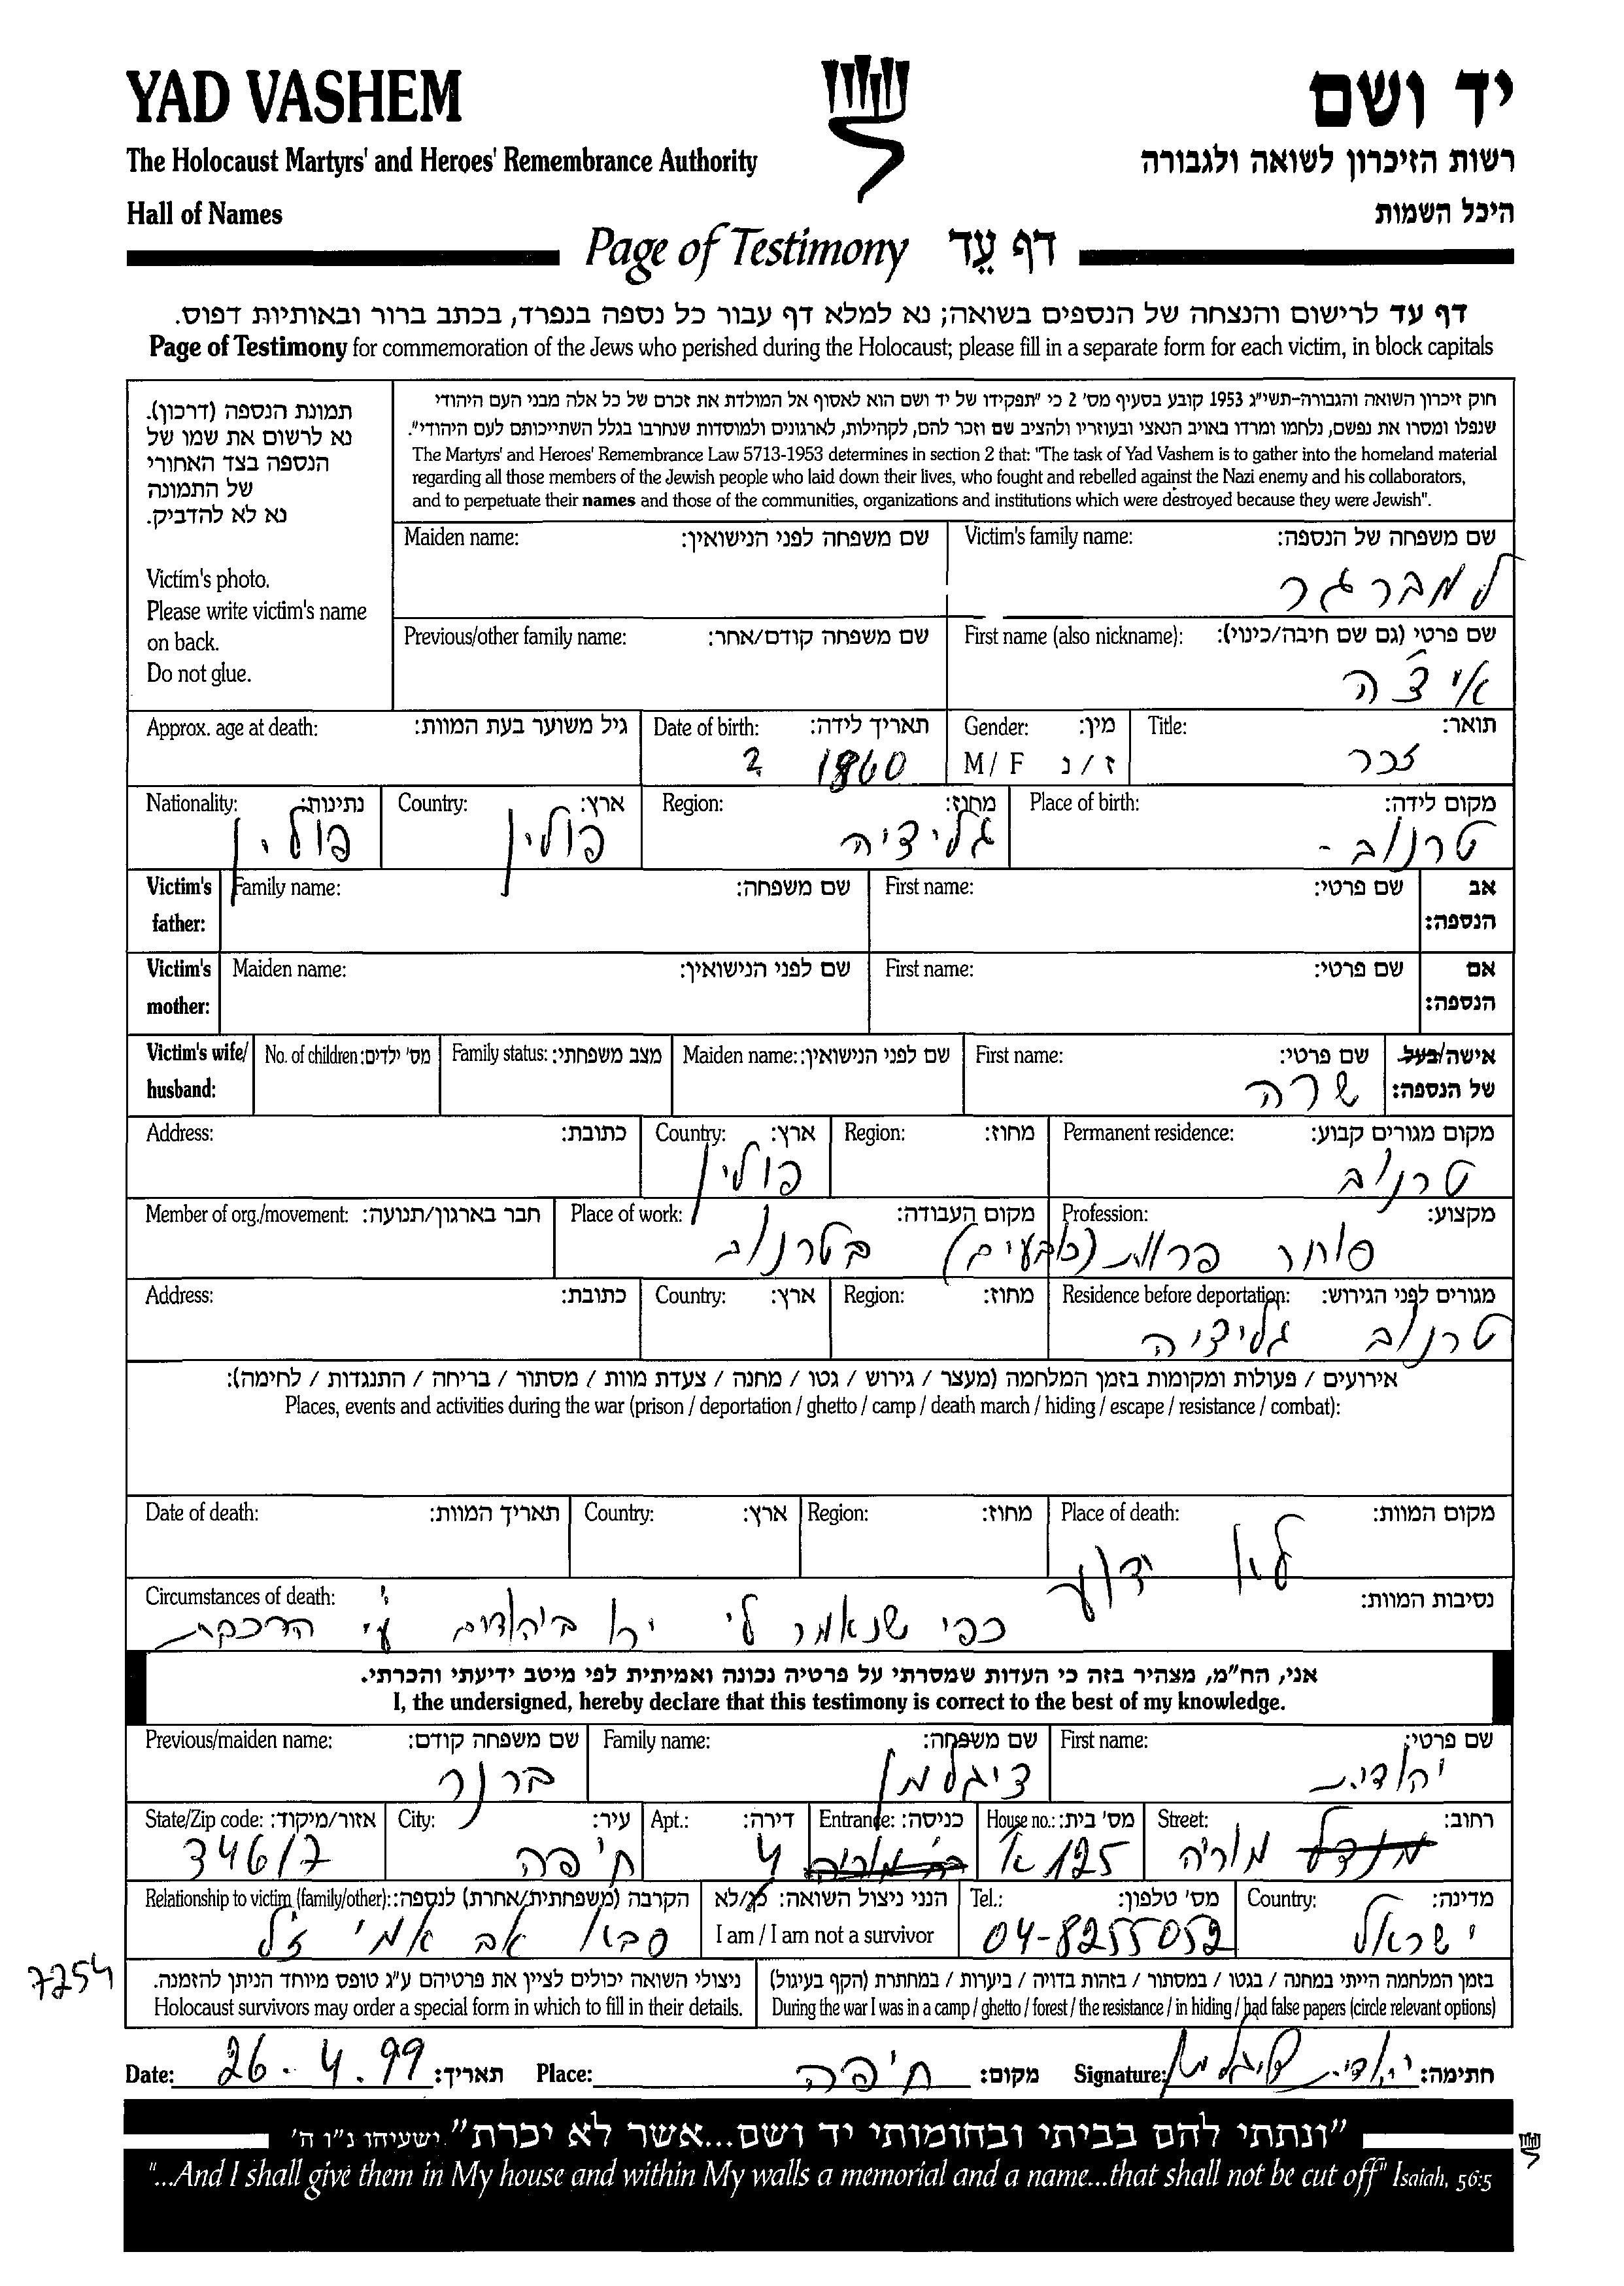 YAD VASHEM
יד ושם
The Holocaust Martyrs' and Heroes' Remembrance Authority
רשות הזיכרון לשואה ולגבורה
Hall of Names
היכל השמות
Page of Testimony דף עֵד
דף עד לרישום והנצחה של הנספים בשואה; נא למלא דף עבור כל נספה בנפרד, בכתב ברור ובאותיות דפוס.
Page of Testimony for commemoration of the Jews who perished during the Holocaust; please fill in a separate form for each victim, in block capitals
תמונת הנספה (דרכון).
נא לרשום את שמו של
הנספה בצד האחורי
של התמונה
נא לא להדביק.
Victim's photo.
Please write victim's name
on back.
Do not glue.
חוק זיכרון השואה והגבורה-תשי"ג 1953 קובע בסעיף מס' 2 כי "תפקידו של יד ושם הוא לאסוף אל המולדת את זכרם של כל אלה מבני העם היהודי
שנפלו ומסרו את נפשם, נלחמו ומרדו באויב הנאצי ובעוזריו ולהציב שם וזכר להם, לקהילות, לארגונים ולמוסדות שנחרבו בגלל השתייכותם לעם היהודי".
The Martyrs' and Heroes' Remembrance Law 5713-1953 determines in section 2 that: "The task of Yad Vashem is to gather into the homeland material
regarding all those members of the Jewish people who laid down their lives, who fought and rebelled against the Nazi enemy and his collaborators,
and to perpetuate their names and those of the communities, organizations and institutions which were destroyed because they were Jewish".
Maiden name: שם משפחה לפני הנישואין:
Victim's family name: שם משפחה של הנספה:
למברגר
Previous/other family name: שם משפחה קודם/אחר:
First name (also nickname): שם פרטי (גם שם חיבה/כינוי):
איצ'ה
Approx. age at death: גיל משוער בעת המוות:
Date of birth: תאריך לידה:
1860 ?
Gender: מין:
M / F ז / נ
Title: תואר:
זכר
Nationality: נתינות:
פולין
Country: ארץ:
פולין
Region: מחוז:
גליציה
Place of birth: מקום לידה:
טרנוב -
Victim's father: Family name: שם משפחה: First name: שם פרטי: אב הנספה:
Victim's mother: Maiden name: שם לפני הנישואין: First name: שם פרטי: אם הנספה:
Victim's wife/ husband: No. of children: מס' ילדים: Family status: מצב משפחתי: Maiden name: שם לפני הנישואין: First name: שם פרטי: אישה/בעל של הנספה:
שרה
Address: כתובת: Country: ארץ: Region: מחוז: Permanent residence: מקום מגורים קבוע:
פולין
טרנוב
Member of org./movement: חבר בארגון/תנועה: Place of work: מקום העבודה: Profession: מקצוע:
סוחר פרוות (כובעים) בטרנוב
Address: כתובת: Country: ארץ: Region: מחוז: Residence before deportation: מגורים לפני הגירוש:
טרנוב גליציה
אירועים / פעולות ומקומות בזמן המלחמה (מעצר / גירוש / גטו / מחנה / צעדת מוות / מסתור / בריחה / התנגדות / לחימה):
Places, events and activities during the war (prison / deportation / ghetto / camp / death march / hiding / escape / resistance / combat):
Date of death: תאריך המוות: Country: ארץ: Region: מחוז: Place of death: מקום המוות:
לא ידוע
Circumstances of death: נסיבות המוות:
כפי שנאמר לי ירו ביהודים ע"י הרכבת
אני, הח"מ, מצהיר בזה כי העדות שמסרתי על פרטיה נכונה ואמיתית לפי מיטב ידיעתי והכרתי.
I, the undersigned, hereby declare that this testimony is correct to the best of my knowledge.
Previous/maiden name: שם משפחה קודם:
ברנר
Family name: שם משפחה:
ציגלמן
First name: שם פרטי:
יהודית
State/Zip code: אזור/מיקוד:
34617
City: עיר:
חיפה
Apt.: דירה:
4
Entrance: כניסה:
House no.: מס' בית:
125 א'
Street: רחוב:
מוריה
Relationship to victim (family/other): הקרבה (משפחתית/אחרת) לנספה:
סבא אב אמי ז"ל
הנני ניצול השואה: כן/לא
I am / I am not a survivor
Tel.: מס' טלפון:
04-8255052
Country: מדינה:
ישראל
7254
ניצולי השואה יכולים לציין את פרטיהם ע"ג טופס מיוחד הניתן להזמנה.
Holocaust survivors may order a special form in which to fill in their details.
בזמן המלחמה הייתי במחנה / בגטו / במסתור / בזהות בדויה / ביערות / במחתרת (הקף בעיגול)
During the war I was in a camp / ghetto / forest / the resistance / in hiding / had false papers (circle relevant options)
Date: 26.4.99 תאריך: Place: חיפה מקום: Signature: יהודית ציגלמן חתימה:
"ונתתי להם בביתי ובחומותי יד ושם...אשר לא יכרת" ישעיהו נ"ו ה'
"...And I shall give them in My house and within My walls a memorial and a name...that shall not be cut off" Isaiah, 56:5